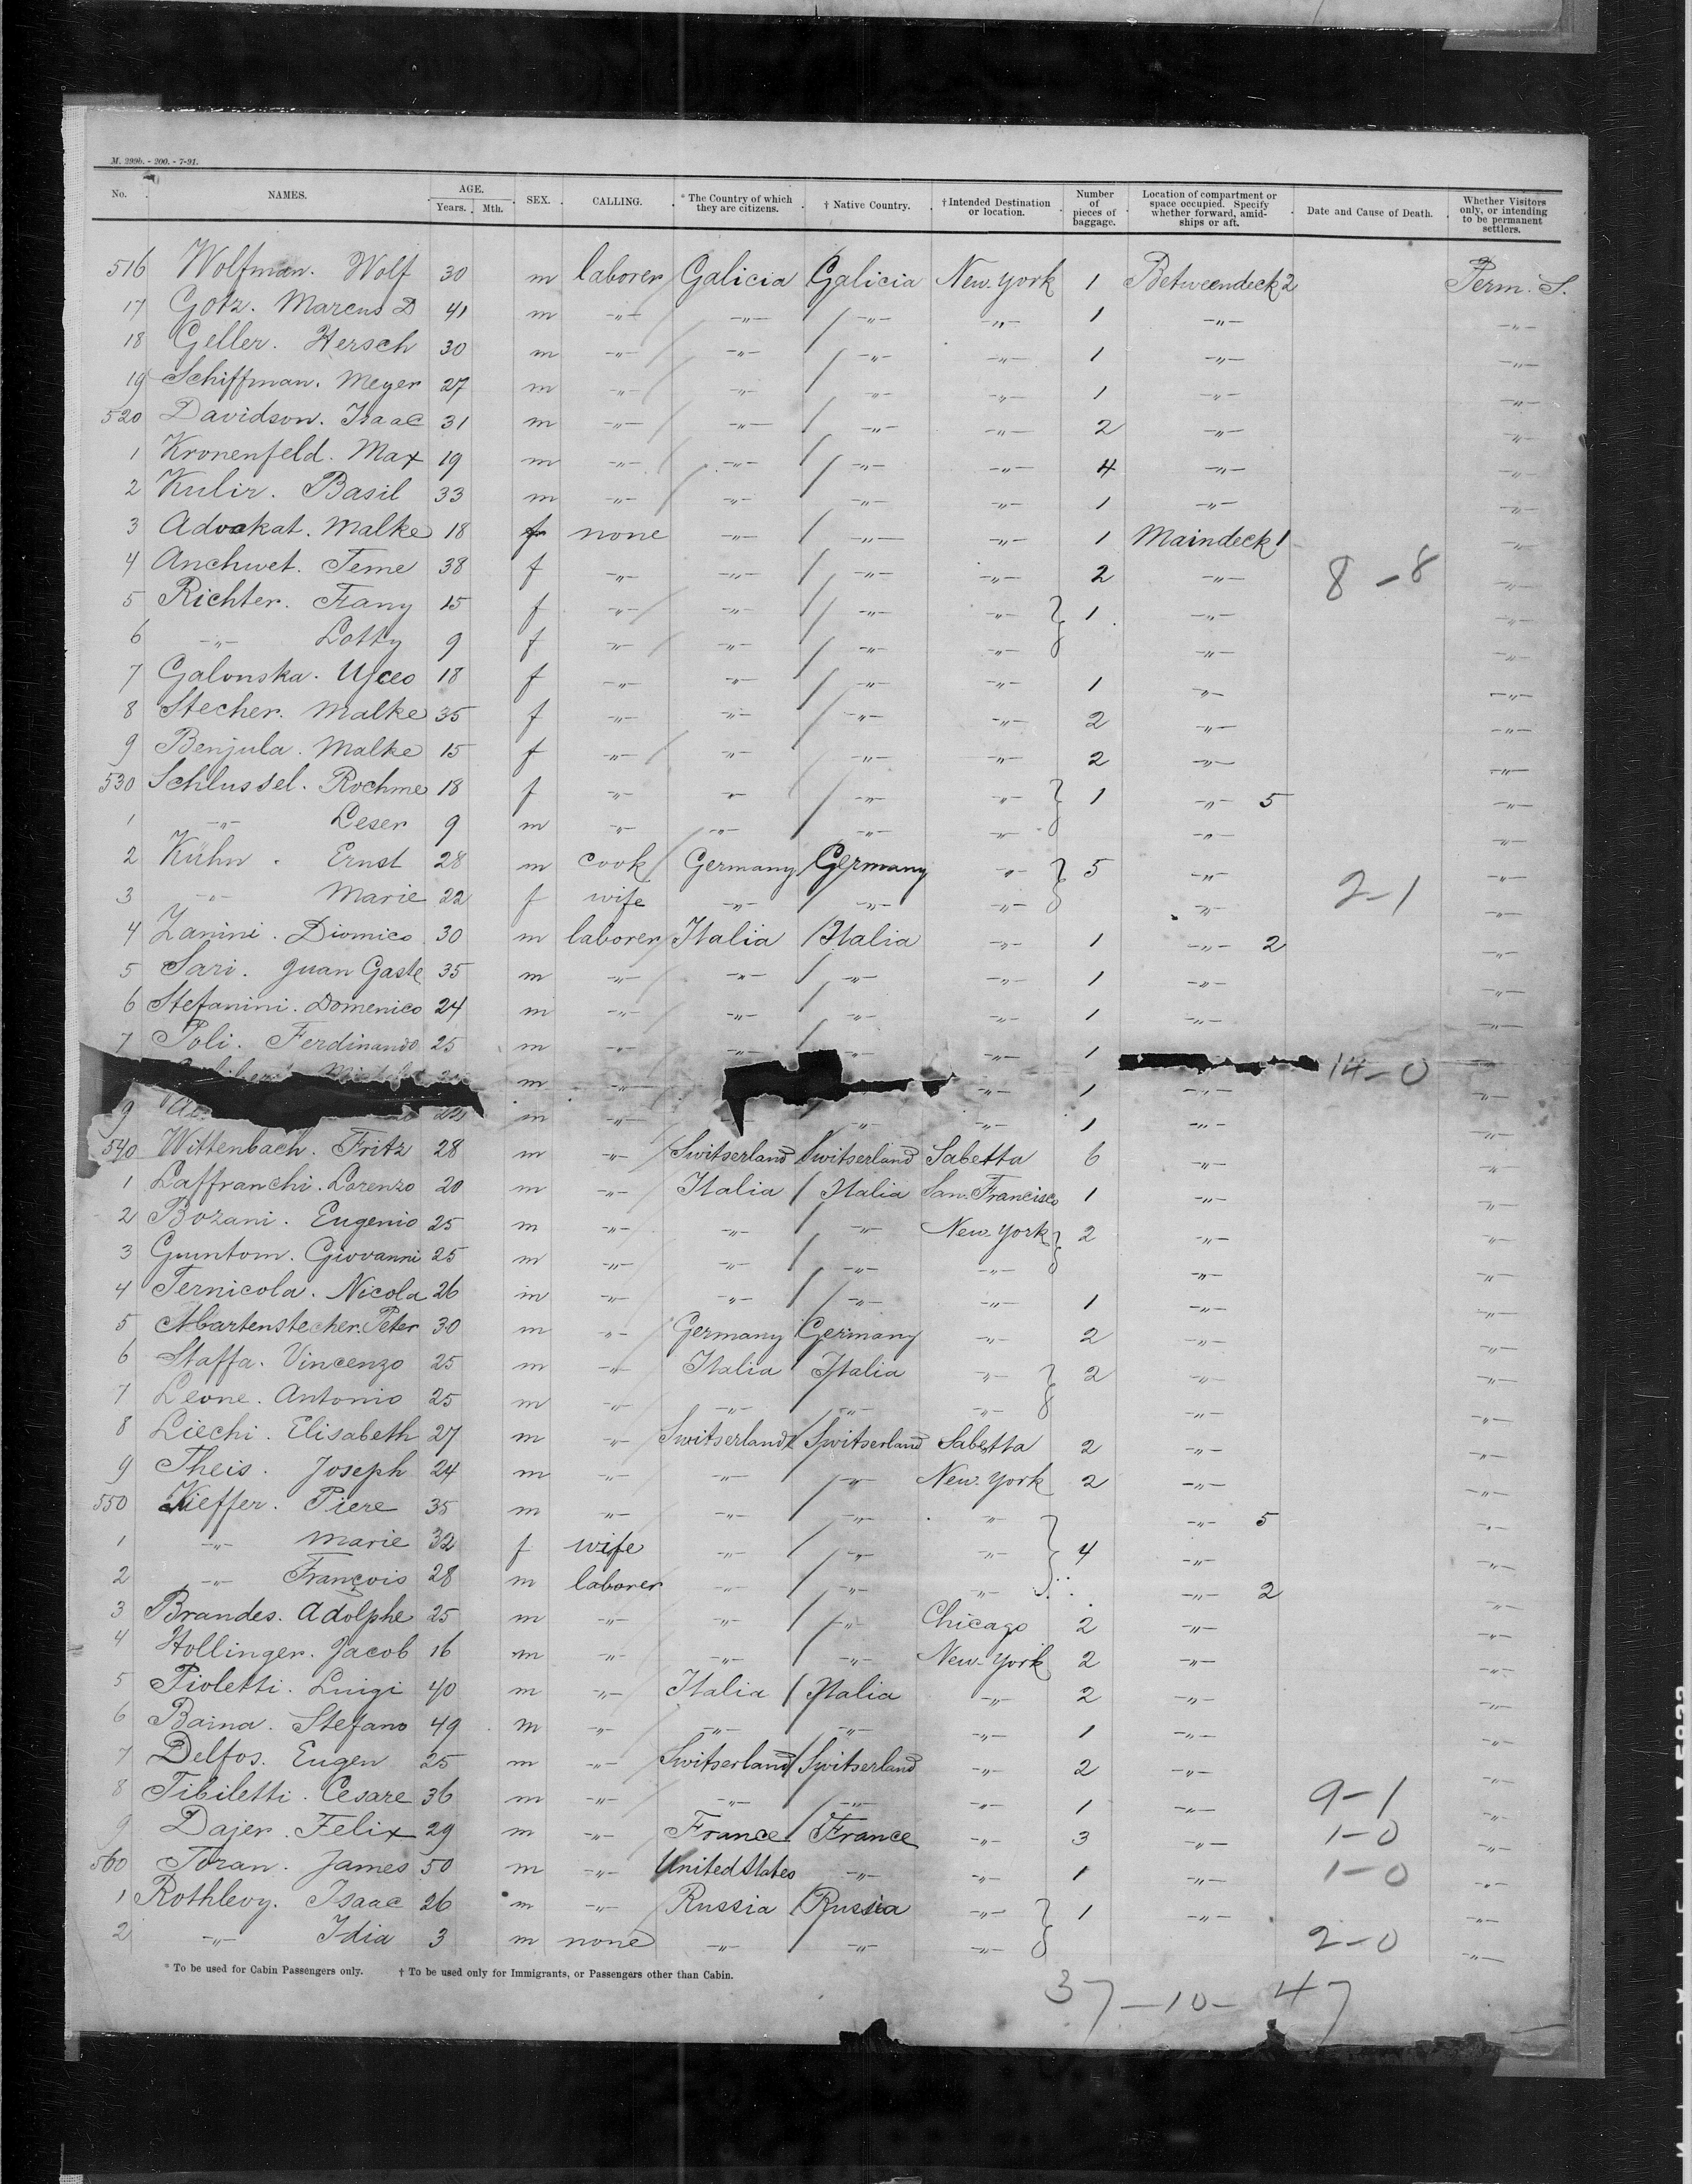 M. 299b. - 200. - 7-91.
No. NAMES. AGE. Years. Mth. SEX. CALLING. * The Country of which they are citizens. † Native Country. † Intended Destination or location. Number of pieces of baggage. Location of compartment or space occupied. Specify whether forward, amidships or aft. Date and Cause of Death. Whether Visitors only, or intending to be permanent settlers.
516 Wolfman. Wolf 30 m laborer Galicia Galicia New York 1 Betweendeck 2 Perm. S.
17 Gotz. Marcus D 41 m -"- -"- -"- -"- 1 -"- -"-
18 Geller. Hersch 30 m -"- -"- -"- -"- 1 -"- -"-
19 Schiffman. Meyer 27 m -"- -"- -"- -"- 1 -"- -"-
520 Davidson. Isaac 31 m -"- -"- -"- -"- 2 -"- -"-
1 Kronenfeld. Max 19 m -"- -"- -"- -"- 4 -"- -"-
2 Kulir. Basil 33 m -"- -"- -"- -"- 1 -"- -"-
3 Advokat. Malke 18 f none -"- -"- -"- 1 Maindeck 1 -"-
4 Anchwet. Teme 38 f -"- -"- -"- -"- 2 -"- 8-8 -"-
5 Richter. Fany 15 f -"- -"- -"- -"- 1 -"- -"-
6 -"- Lotty 9 f -"- -"- -"- -"- -"- -"-
7 Galonska. 18 f -"- -"- -"- -"- 1 -"- -"-
8 Stecher. Malke 35 f -"- -"- -"- -"- 2 -"- -"-
9 Benjula. Malke 15 f -"- -"- -"- -"- 2 -"- -"-
530 Schlussel. Rochme 18 f -"- -"- -"- -"- 1 -"- 5 -"-
1 -"- Leser 9 m -"- -"- -"- -"- -"- -"-
2 Kühn. Ernst 28 m cook Germany Germany -"- 5 -"- 2-1 -"-
3 -"- Marie 22 f wife -"- -"- -"- -"- -"-
4 Zanini. Diomico 30 m laborer Italia Italia -"- 1 -"- 2 -"-
5 Sari. Juan Gaste 35 m -"- -"- -"- -"- 1 -"- -"-
6 Stefanini. Domenico 24 m -"- -"- -"- -"- 1 -"- -"-
7 Poli. Ferdinando 25 m -"- -"- -"- 1 14-0 -"-
m -"- -"- 1 -"- -"-
9 m -"- -"- 1 -"- -"-
540 Wittenbach. Fritz 28 m -"- Switserland Switserland Sabetta 6 -"- -"-
1 Laffranchi. Lorenzo 20 m -"- Italia Italia San Francisco 1 -"- -"-
2 Bozani. Eugenio 25 m -"- -"- -"- New York 2 -"- -"-
3 Guintom. Giovanni 25 m -"- -"- -"- -"- -"- -"-
4 Ternicola. Nicola 26 m -"- -"- -"- -"- 1 -"- -"-
5 Martenstecher. Peter 30 m -"- Germany Germany -"- 2 -"- -"-
6 Staffa. Vincenzo 25 m -"- Italia Italia -"- 2 -"- -"-
7 Leone. Antonio 25 m -"- -"- -"- -"- -"- -"-
8 Liechi. Elisabeth 27 m -"- Switserland Switserland Sabetta 2 -"- -"-
9 Theis. Joseph 24 m -"- -"- -"- New York 2 -"- -"-
550 Kieffer. Piere 35 m -"- -"- -"- -"- -"- 5 -"-
1 -"- Marie 32 f wife -"- -"- -"- 4 -"- -"-
2 -"- François 28 m laborer -"- -"- -"- -"- 2 -"-
3 Brandes. Adolphe 25 m -"- -"- -"- Chicago 2 -"- -"-
4 Hollinger. Jacob 16 m -"- -"- -"- New York 2 -"- -"-
5 Pioletti. Luigi 40 m -"- Italia Italia -"- 2 -"- -"-
6 Baina. Stefano 49 m -"- -"- -"- 1 -"- -"-
7 Delfos. Eugen 25 m -"- Switserland Switserland -"- 2 -"- -"-
8 Tibiletti. Cesare 36 m -"- -"- -"- -"- 1 -"- 9-1 -"-
9 Dajer. Felix 29 m -"- France France -"- 3 -"- 1-0 -"-
560 Toran. James 50 m -"- United States -"- -"- 1 -"- 1-0 -"-
1 Rothlevy. Isaac 26 m -"- Russia Russia -"- 1 -"- -"-
2 -"- Idia 3 m none -"- -"- -"- 2-0 -"-
* To be used for Cabin Passengers only. † To be used only for Immigrants, or Passengers other than Cabin.
37-10-47